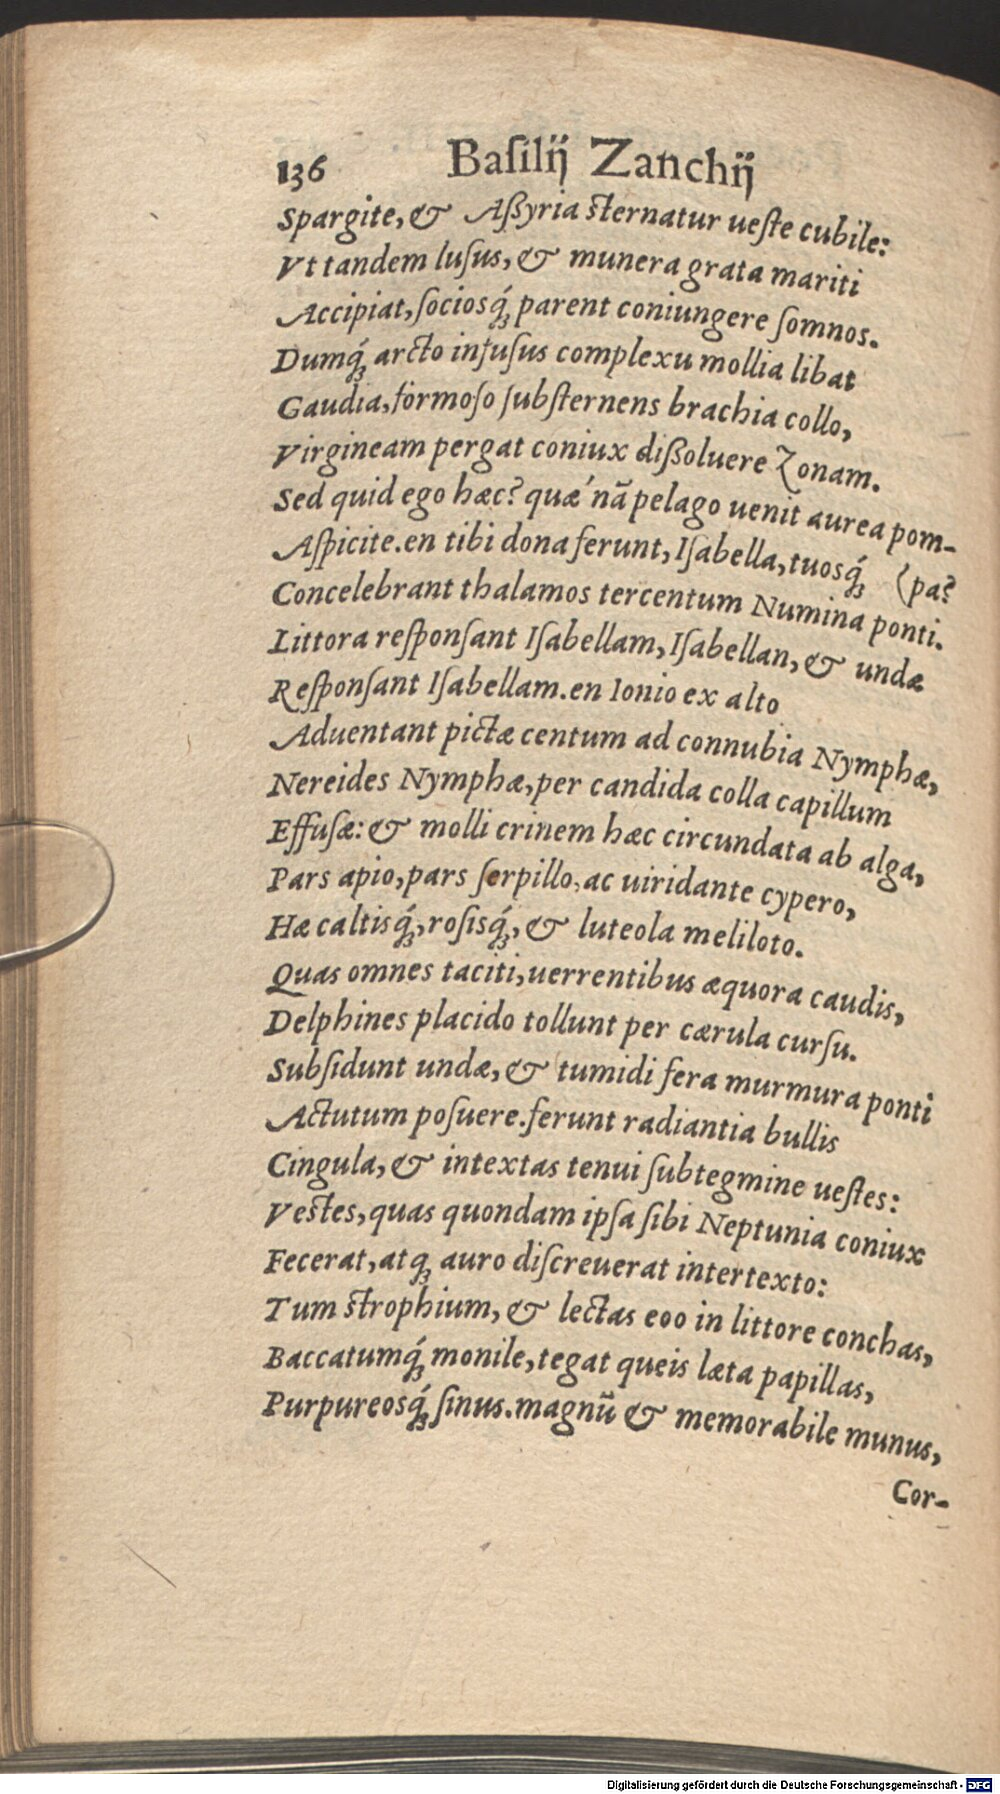 136 Baſilĳ Zanchĳ
Spargite, & Aßyria ſternatur ueſte cubile:
Vt tandem luſus, & munera grata mariti
Accipiat, ſociosq́; parent coniungere ſomnos.
Dumq́; arcto infuſus complexu mollia libat
Gaudia, formoſo ſubſternens brachia collo,
Virgineam pergat coniux dißoluere Zonam.
Sed quid ego hæc? quæ'nã pelago uenit aurea pom-
Aſpicite. en tibi dona ferunt, Iſabella, tuosq́; (pa?
Concelebrant thalamos tercentum Numina ponti.
Littora reſponſant Iſabellam, Iſabellan, & undæ
Reſponſant Iſabellam. en Ionio ex alto
Aduentant pictæ centum ad connubia Nymphæ,
Nereides Nymphæ, per candida colla capillum
Effuſæ: & molli crinem hæc circundata ab alga,
Pars apio, pars ſerpillo, ac uiridante cypero,
Hæ caltisq́;, roſisq́;, & luteola meliloto.
Quas omnes taciti, uerrentibus æquora caudis,
Delphines placido tollunt per cærula curſu.
Subſidunt undæ, & tumidi fera murmura ponti
Actutum poſuere. ferunt radiantia bullis
Cingula, & intextas tenui ſubtegmine ueſtes:
Veſtes, quas quondam ipſa ſibi Neptunia coniux
Fecerat, atq; auro diſcreuerat intertexto:
Tum ſtrophium, & lectas eoo in littore conchas,
Baccatumq́; monile, tegat queis læta papillas,
Purpureosq́; ſinus. magnũ & memorabile munus,
Cor-
Digitalisierung gefördert durch die Deutsche Forschungsgemeinschaft - DFG